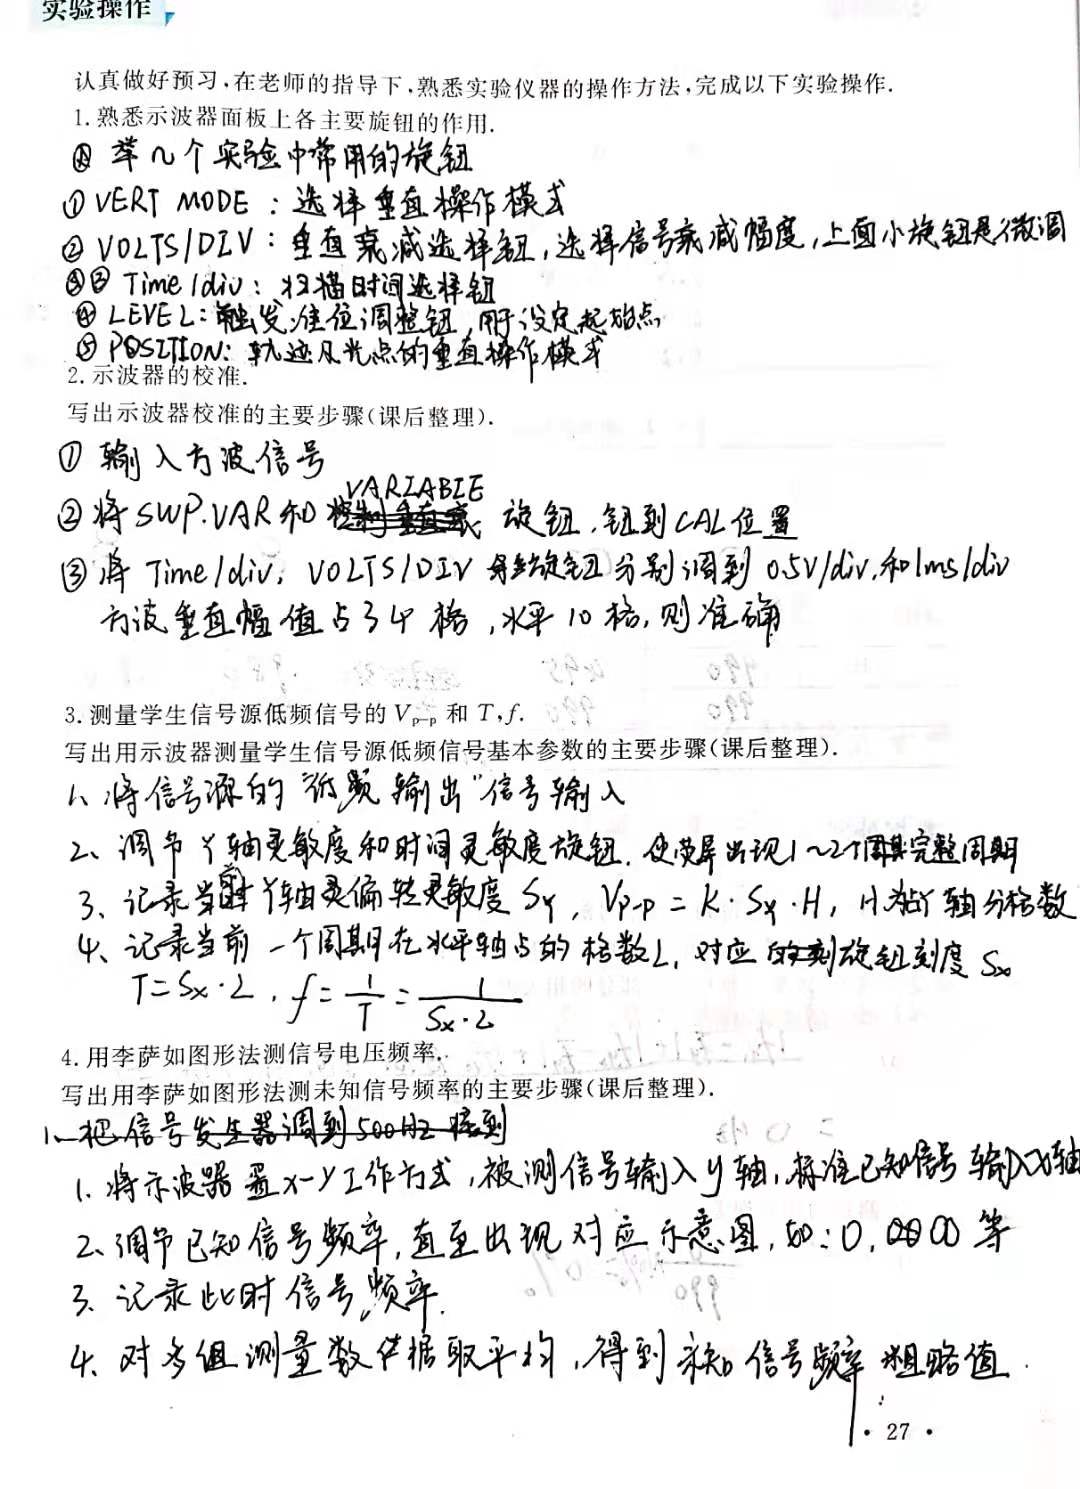 实验操作
认真做好预习,在老师的指导下,熟悉实验仪器的操作方法,完成以下实验操作.
1.熟悉示波器面板上各主要旋钮的作用.
举几个实验中常用的旋钮
① VERT MODE：选择垂直操作模式
② VOLTS/DIV：垂直衰减选择钮,选择信号衰减幅度,上面小旋钮是微调
③ Time/div：扫描时间选择钮
④ LEVEL：触发准位调整钮,用于设定起始点
⑤ POSITION：轨迹及光点的垂直操作模式
2.示波器的校准.
写出示波器校准的主要步骤(课后整理).
① 输入方波信号
VARIABLE
② 将SWP.VAR和 旋钮.钮到CAL位置
③ 将 Time/div, VOLTS/DIV 旋钮分别调到 0.5V/div,和1ms/div
方波垂直幅值占了4格,水平10格,则准确
3.测量学生信号源低频信号的 Vp-p 和 T,f.
写出用示波器测量学生信号源低频信号基本参数的主要步骤(课后整理).
1、将信号源的“低频输出”信号输入
2、调节Y轴灵敏度和时间灵敏度旋钮.使荧屏出现1~2个完整周期
3、记录当前Y轴偏转灵敏度 Sy, Vp-p = K·Sy·H, H为Y轴分格数
4、记录当前一个周期在水平轴占的格数L,对应旋钮刻度 Sx
T=Sx·L, f=1/T=1/(Sx·L)
4.用李萨如图形法测信号电压频率.
写出用李萨如图形法测未知信号频率的主要步骤(课后整理).
1、把信号发生器调到500Hz 接到
1.将示波器置x-y工作方式,被测信号输入y轴,标准已知信号输入x轴
2、调节已知信号频率,直至出现对应示意图,如：0,00 等
3、记录此时信号频率.
4、对多组测量数据取平均,得到未知信号频率粗略值.
·27·